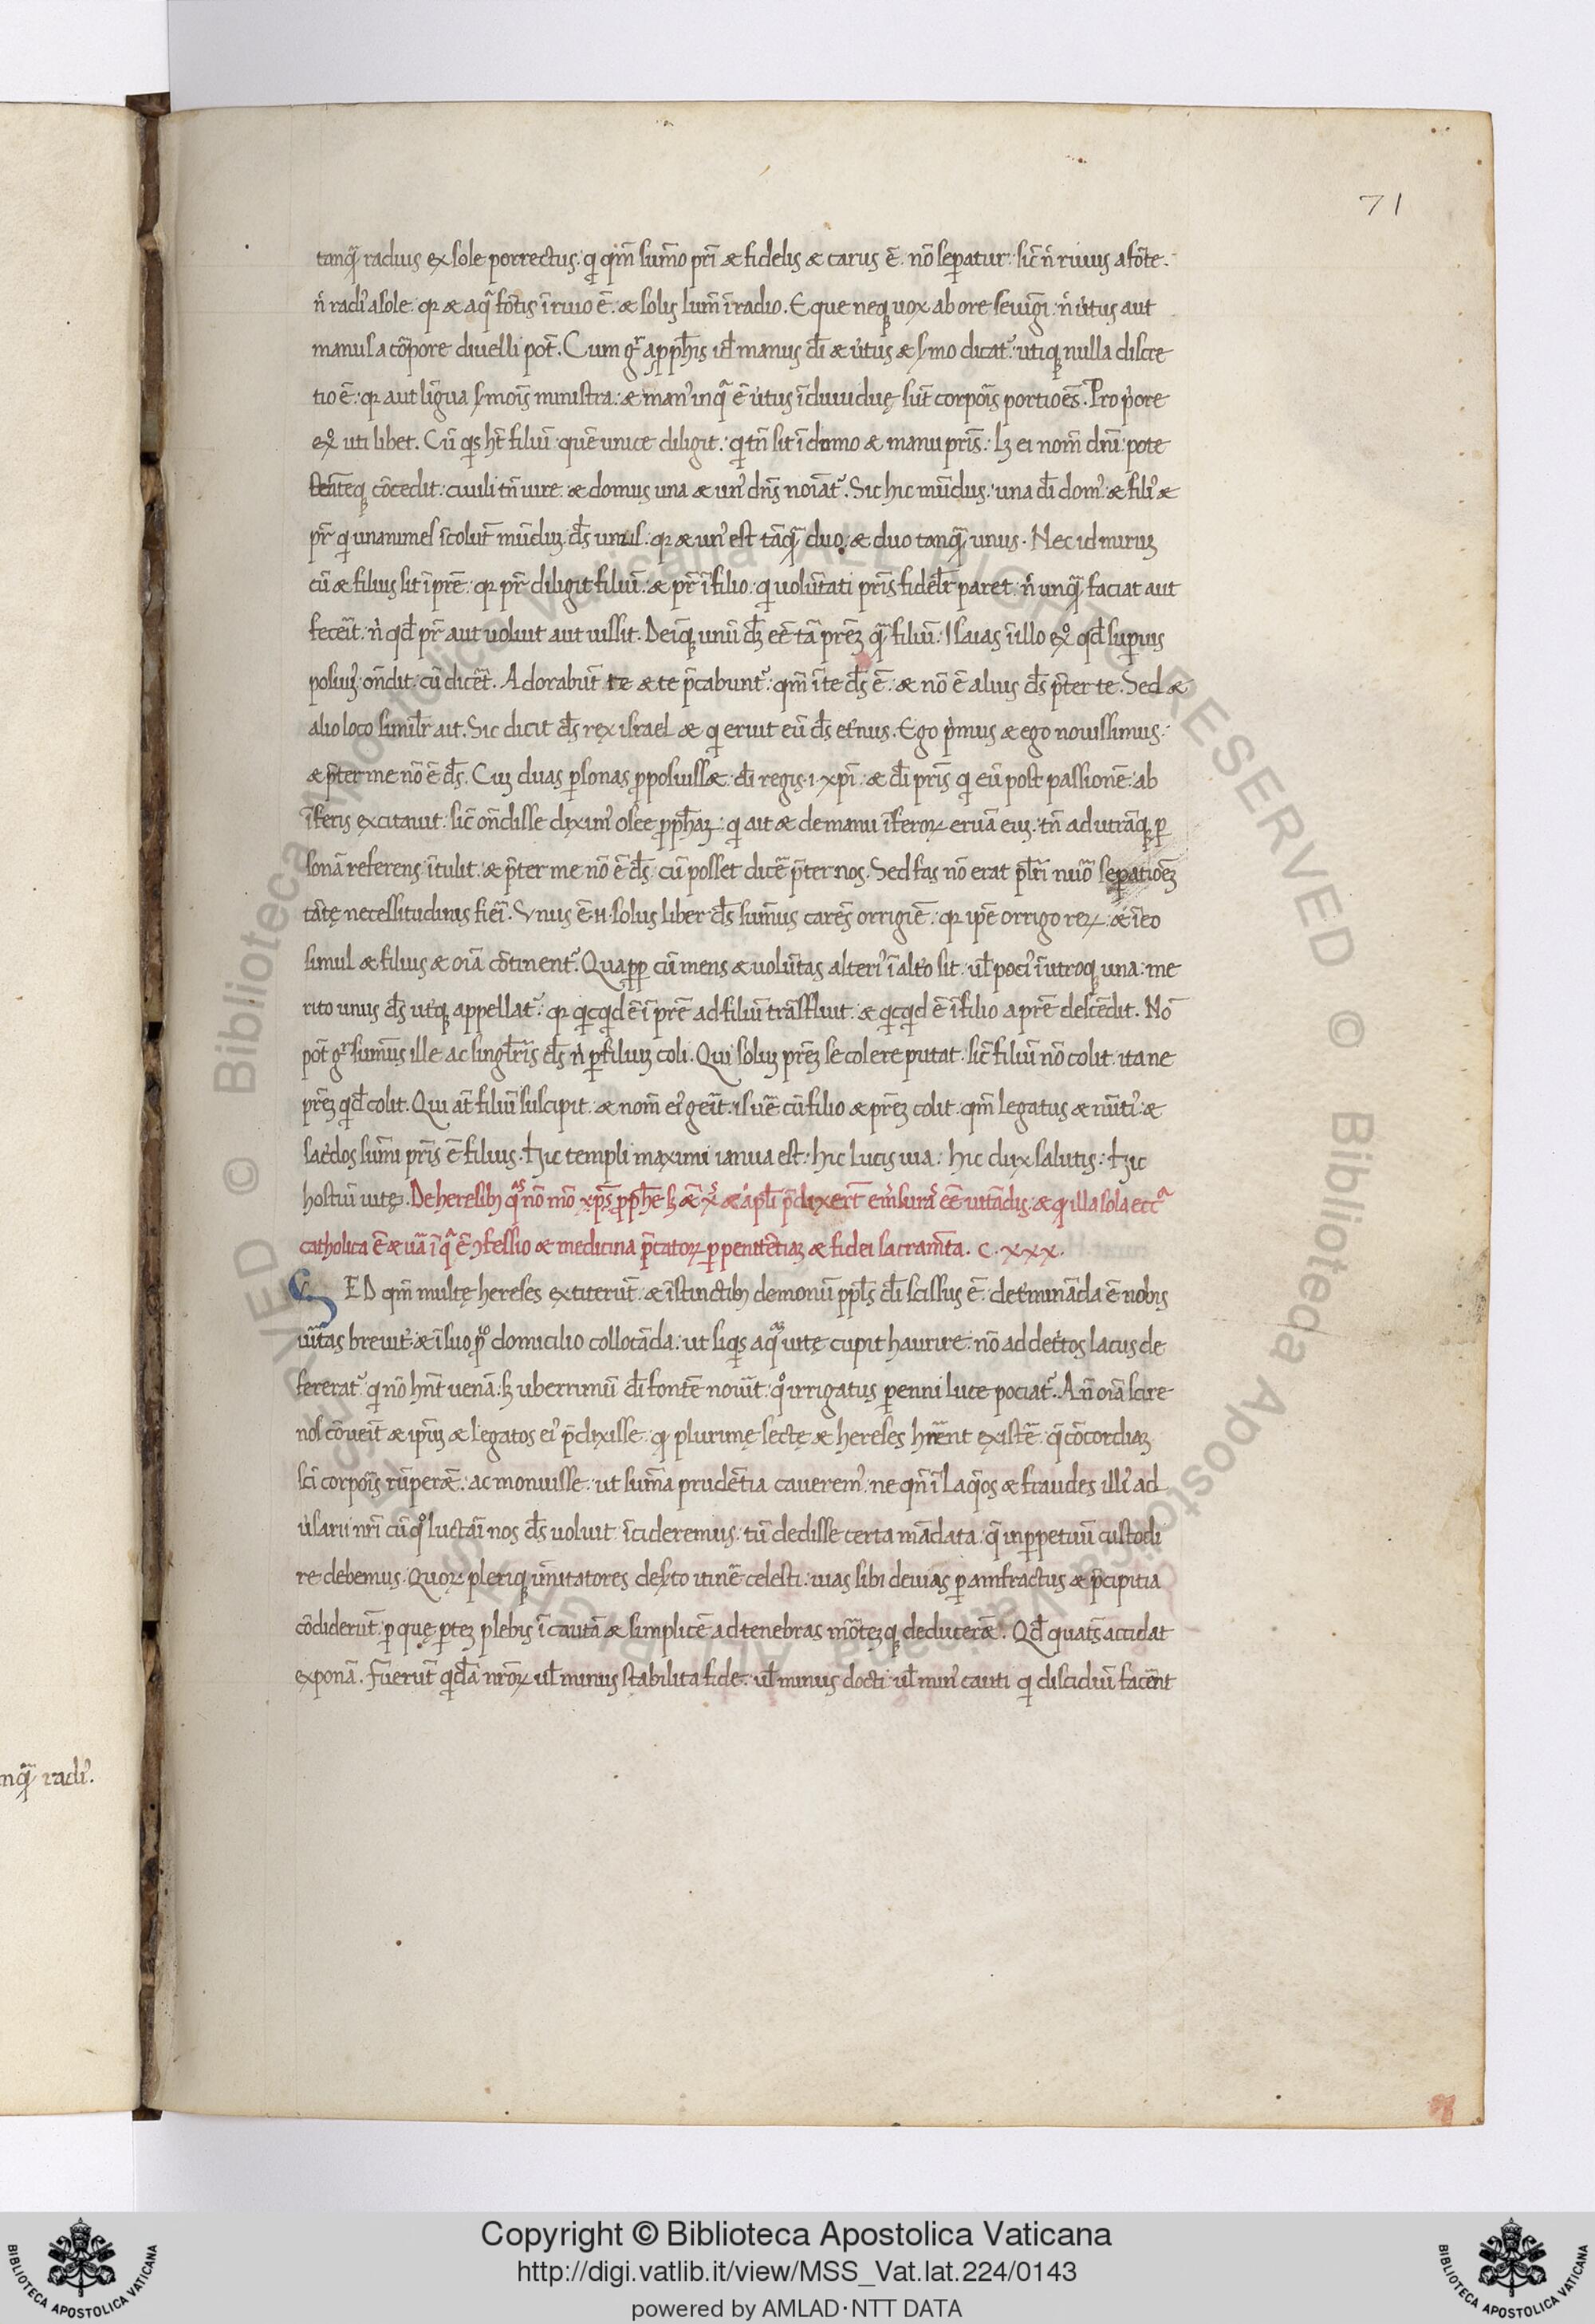 71
tanq̃ radius ex sole porrectus. q qm̃ sum̃o pr̃i & fidelis & carus ẽ. nõ sepatur. sic̃ n̊ riuus a fõte.
n̊ radi᾽ a sole. qr & aq̃ fõtis ĩ riuo ẽ. & solis lum̃ ĩ radio. Eque neq; uox ab ore seiũgi. n̊ u̓tus aut
manus a cõpore diuelli pot̃. Cum gͬ a ꝓph̃is id̃ manus dĩ & u̓tus & s̓mo dicat᷑. utiq; nulla discre
tio ẽ. qr aut lĩgua s̓mois̃ ministra. & man᾽ in qͣ ẽ u̓tus ĩdiuiduę sũt corpor̃is portiões. Pro p̓ore
exº uti libet. Cũ q̃s ht̃ filiũ quẽ unice diligit. q tñ sit ĩ domo & manu pr̃is. lꝫ ei nom̃ dñi pote
stẽteq; cõcedit. ciuili tñ iure. & domus una & un᾽ dñs noiat̃᷑. Sic hic mũdus. una dĩ dom᾽. & fili᾽ &
pr̃ q unanimes ĩcolũt mũduꝫ. ds̃ unus. qr & un᾽ est tãq̃ duo. & duo tanq̃ unus. Nec id miruꝫ
cũ & filius sit ĩ pr̃e. qr pr̃ diligit filiũ. & pr̃ ĩ filio. q volũtati pr̃is fidelr̃ paret. n̊ unq̃ faciat aut
fecẽit. n̓ qd̃ pr̃ aut voluit aut iussit. Deĩq; unũ dꝫ eẽ tã pr̃eꝫ q̃ filiũ. Isaias ĩ illo exº qd̃ supius
posuiꝫ. õndit. cũ dicẽt. Adorabũt te & te p̃cabunt᷑. qm̃ ĩ te ds̃ ẽ. & nõ ẽ alius ds̃ p̃ter te. Sed &
alio loco similr̃ ait. Sic dicit ds̃ rex israel & q eruit eũ ds̃ et̓nus. Ego p̓mus & ego nouissimus.
& p̃ter me nõ ẽ ds̃. Cuꝫ duas psonas ꝓposuiss&. dĩ regis .i. xp̃i. & dĩ pr̃is q eũ post passionẽ ab
ĩferis excitauit. sic̃ õndisse dixim᾽ osee ꝓph̃aꝫ. q ait & de manu ĩferoꝝ eruã euꝫ. tñ ad utrãq; p
sonã referens ĩtulit. & p̃ter me nõ ẽ ds̃. cũ posset dicẽ p̃ter nos. Sed fas nõ erat pl̃ri nũo sepatiõeꝫ
tãtę necessitudinis fieĩ. Vnus ẽ .n. solus liber ds̃ sum̃us carẽs orrigiẽ. qr ip̃e orrigo reꝝ. & ĩ eo
simul & filius & oĩa cõtinent᷑. Quapp̱ cũ mens & volũtas alteri᾽ ĩ alt̓o sit. ul̃ poci᾽ ĩ utroq; una. me
rito unus ds̃ ut̓q; appellat᷑. qr qicqid ẽ ĩ pr̃e ad filiũ trãsfluit. & qicqid ẽ ĩ filio a pr̃e descẽdit. Nõ
pot̃ gͬ sum̃us ille ac singl̃ris ds̃ n̓ p filiuꝫ coli. Qui soluꝫ pr̃eꝫ se colere putat. sic̃ filiũ nõ colit. ita ne
pr̃eꝫ qd̃ colit. Qui aũt filiũ suscipit. & nom̃ ei᾽ geĩt. is uẽ cũ filio & pr̃eꝫ colit. qm̃ legatus & nũti᾽ &
sac̓dos sum̃i pr̃is ẽ filius. Hic templi maximi ianua est. hic lucis uia. hic dux salutis. Hic
hostiũ uitę. De heresibꝫ qͣs nõ mõ xp̃s ꝓph̃e sꝫ & apl̃i p̃dixert̃ eẽ uitãdis. & q illa sola eccͣ
catholica ẽ & uã ĩ qͣ ẽ ꝯfessio & medicina p̃catoꝝ p penitẽtiaꝫ & fidei sacramẽta. C. xxx.
SED qm̃ multę hereses extiterũt. & ĩstinctibꝫ demonũ ppl̃s dĩ scissus ẽ. det̓minãda ẽ nobis
uĩtas breuit̓. & ĩ suo ꝓº domicilio collocãda. ut siqs aqͣꝫ uitę cupit haurire. nõ ad det̓tos lacus de
fererat᷑. q nõ hñt uenã. sꝫ uberrimũ dĩ fontẽ nouĩt. qº irrigatus penni luce pociat᷑. Añ oĩa scire
nos cõueĩt & ip̃uꝫ & legatos ei᾽ p̃dixisse. q plurimę sectę & hereses hr̃ent existẽ. q̃ cõcordiaꝫ
sc̃i corpor̃is rũper&. ac monuisse. ut sum̃a prudẽtia caverem᾽. ne qñ ĩ laq̃os & fraudes illi᾽ ad
u̓sarii nr̃i cũ qº luctaĩ nos ds̃ voluit ĩcideremus. tũ dedisse certa mãdata. q̃ in ppetuũ custodi
re debemus. Quoꝝ pleriq; ĩmitatores des̓to itinẽ celesti. uias sibi deuias p amfractus & p̃cipitia
cõdiderũt. p quę pteꝫ plebis ĩcautã & simplicẽ ad tenebras mõteꝫq; deducer&. Qd̃ quat̓s accidat
exponã. Fuerũt qidã nr̃oꝝ ul̃ minus stabilita fide. ul̃ minus docti ul̃ min᾽ cauti q discidiũ facẽnt
nq̃ radi᾽.
Copyright © Biblioteca Apostolica Vaticana
http://digi.vatlib.it/view/MSS_Vat.lat.224/0143
powered by AMLAD·NTT DATA
BIBLIOTECA APOSTOLICA VATICANA
BIBLIOTECA APOSTOLICA VATICANA